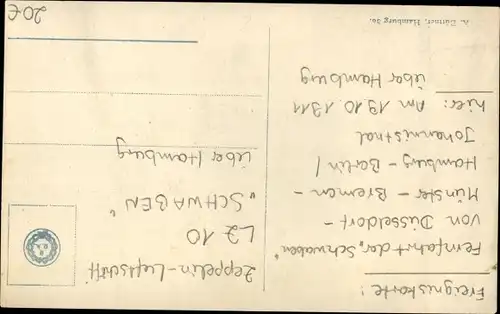 Ereigniskarte!
Fernfahrt der „Schwaben"
von Düsseldorf -
Münster - Bremen -
Hamburg - Berlin /
Johannisthal
hier: Am 19.10.1911
über Hamburg
Zeppelin-Luftschiff
LZ 10
„SCHWABEN"
über Hamburg
20€
Hamburg 30.